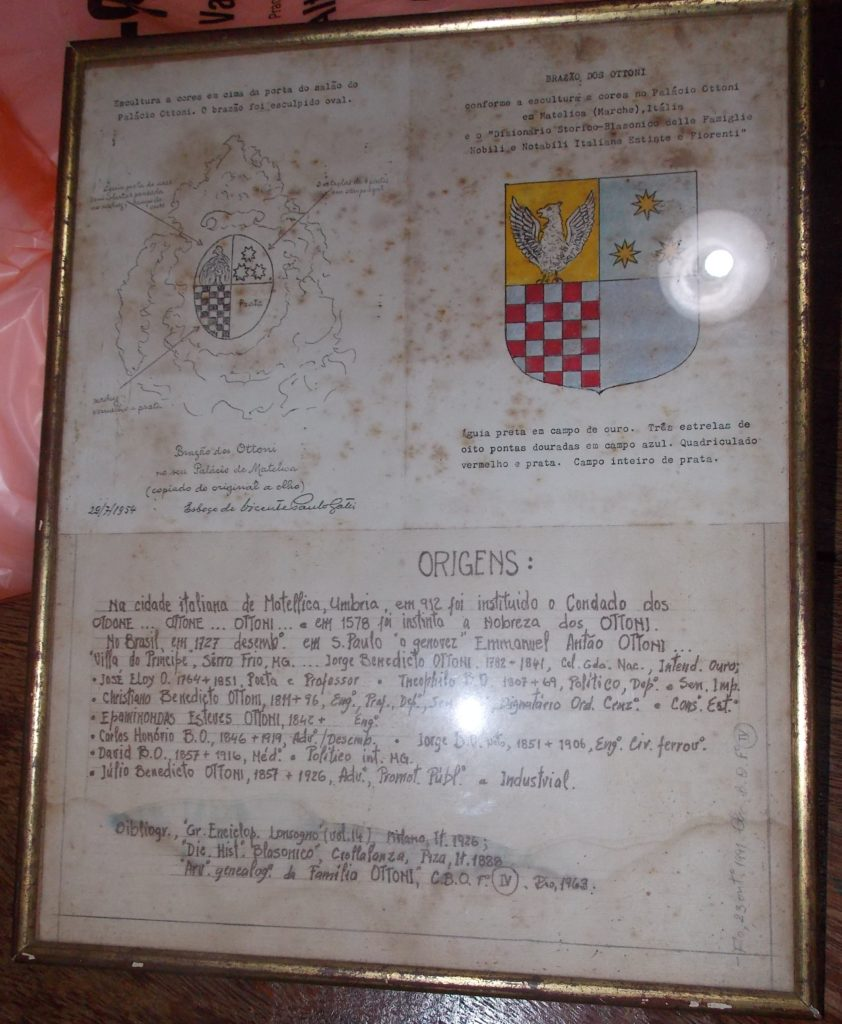 Escultura a cores em cima da porta do salão do
Palácio Ottoni. O brazão foi esculpido oval.
3 estrelas de 8 pontas
em campo azul
Prata
xadrez
vermelho e prata
Brazão dos Ottoni
no seu Palácio de Matelica
(copiado do original a olho)
28/7/1954 Esboço de Vicente Paulo Gatti
BRAZÃO DOS OTTONI
conforme a escultura a cores no Palácio Ottoni
em Matelica (Marche), Itália
e o "Dizionario Storico-Blasonico delle Famiglie
Nobili e Notabili Italiane Estinte e Fiorenti"
Águia preta em campo de ouro. Três estrelas de
oito pontas douradas em campo azul. Quadriculado
vermelho e prata. Campo inteiro de prata.
ORIGENS:
Na cidade italiana de Matellica, Umbria, em 912 foi instituido o Condado dos
OTDONE ... OTTONE ... OTTONI ... e em 1578 foi instinta a Nobreza dos OTTONI.
No Brasil, em 1727 desembº. em S. Paulo "o genovez" Emmanuel Antão OTTONI ...
Villa do Principe, Serro Frio, MG. ... Jorge Benedicto OTTONI, 1782 + 1841, Cel. Gda. Nac., Intend. Ouro;
• José Eloy O. 1764 + 1851, Poeta e Professor • Theophilo B.O. 1807 + 69, Político, Depº. e Sen. Imp.
• Christiano Benedicto OTTONI, 1811 + 96, Engº., Prof., Depº., Sen. Dignatário Ord. Cruzº. e Consº. Estº
• Epaminondas Esteves OTTONI, 1842 + Engº.
• Carlos Honório B.O., 1846 + 1919, Advº./Desemb. • Jorge B.O. Neto, 1851 + 1906, Engº. Civ. ferrovº.
• David B.O., 1857 + 1916, Médº. e Político int. MG.
• Júlio Benedicto OTTONI, 1857 + 1926, Advº., Promot. Públº. e Industrial.
Bibliogr., "Gr. Enciclop. Lonsogno" (vol. 14) Milano, It. 1926;
"Dic. Histº. Blasonico", Crollalanza, Piza, It. 1888
"Arvº. genealogº. da Família OTTONI", C.B.O. Fº. IV. Rio, 1963.
Rio, 1991 C.B.O. Fº IV